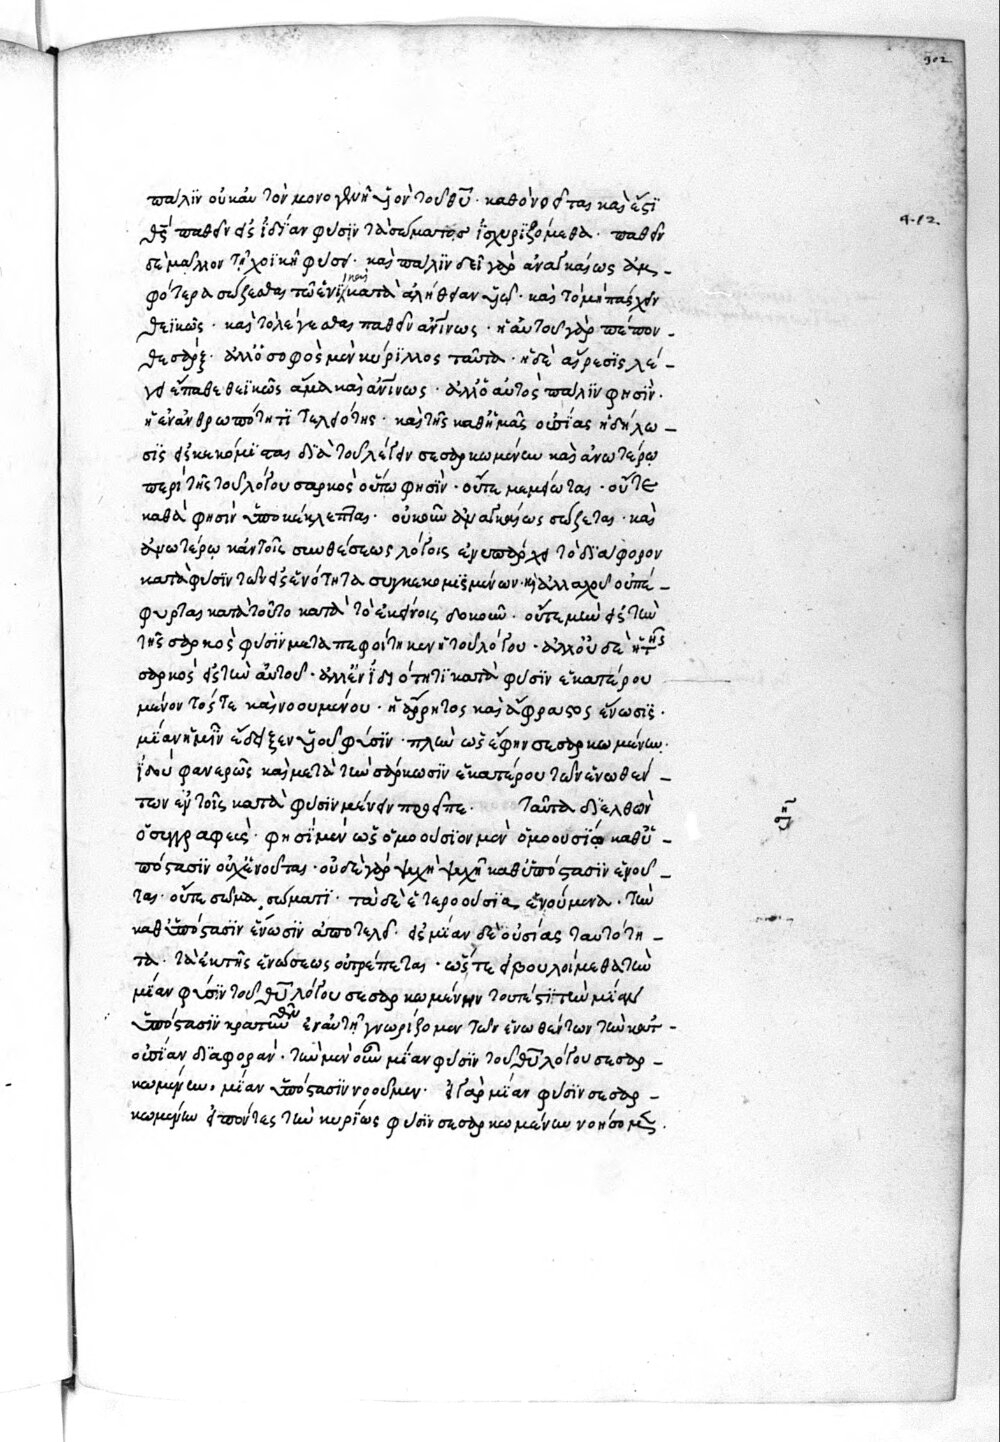 302
4.12
πάλιν οὐκ ἂν τὸν μονογενῆ υἱὸν τοῦ θυ̅· καθὸ νοεῖται καὶ ἔστι
θς̅ παθεῖν εἰς ἰδίαν φύσιν τὰ σώματος ἰσχυριζόμεθα· παθεῖν
δὲ μᾶλλον τῆ χοϊκῆ φύσει· καὶ πάλιν δεῖ γὰρ ἀναγκαίως ἀμ-
φότερα σώζεσθαι τῶ ἑνὶ κατὰ ἀλήθειαν υἱῶ· καὶ τὸ μὴ πάσχειν
θεϊκῶς· καὶ τὸ λέγεσθαι παθεῖν ἀνίνως· ἡ αὐτοῦ γὰρ πέπον-
θε σάρξ· ἀλλ' ὁ σοφὸς μὲν κύριλλος ταῦτα· ἡ δὲ αἵρεσις λέ-
γει ἔπαθε θεϊκῶς ἅμα καὶ ἀνίνως· ἀλλ' ὁ αὐτὸς πάλιν φησὶν·
ἡ ἐν ἀνθρωπότητι τελειότης· καὶ τῆς καθ' ἡμᾶς οὐσίας ἡ δήλω-
σις εἰσκεκόμισται διὰ τοῦ λέγειν σεσαρκωμένην καὶ ἀνωτέρω
περὶ τῆς τοῦ λόγου σαρκὸς οὕτω φησὶν· οὔτε μεμείωται· οὔτε
καθά φησιν ὑποκέκλεπται· οὐκοῦν ἀναγκαίως σώζεται· καὶ
ἀνωτέρω κἀν τοῖς συνθέσεως λόγοις ἐνυπάρχει τὸ διάφορον
κατὰ φύσιν τῶν εἰς ἑνότητα συγκεκομισμένων· καὶ ἀλλαχοῦ οὐ πέ-
φυρται κατὰ τοῦτο κατὰ τὸ ἐκείνοις δοκοῦν· οὔτε μὴν εἰς τὴν
τῆς σαρκὸς φύσιν μεταπεφοίτηκεν ἡ τοῦ λόγου· ἀλλ' οὐδὲ ἡ τῆς
σαρκὸς εἰς τὴν αὐτοῦ· ἀλλ' ἐν ἰδιότητι κατὰ φύσιν ἑκατέρου
μένοντός τε καὶ νοουμένου· ἡ ἄρρητος καὶ ἄφραστος ἕνωσις·
μίαν ἡμῖν ἔδειξεν υἱοῦ φύσιν· πλὴν ὡς ἔφην σεσαρκωμένην·
ἰδοὺ φανερῶς καὶ μετὰ τὴν σάρκωσιν ἑκατέρου τῶν ἑνωθέν-
των ἐν τοῖς κατὰ φύσιν μένειν προεῖπε· Ταῦτα διελθὼν
ὁ συγγραφεὺς· φησὶ μὲν ὡς ὁμοούσιον μὲν ὁμοουσίῳ καθ' ὑ-
πόστασιν οὐχ ἑνοῦται· οὐδὲ γὰρ ψυχὴ ψυχῆ καθ' ὑπόστασιν ἑνοῦ
ται· οὔτε σῶμα σώματι· τὰ δὲ ἑτεροούσια, ἑνούμενα· τὴν
καθ' ὑπόστασιν ἕνωσιν ἀποτελεῖ· εἰς μίαν δὲ οὐσίας ταυτότη-
τα· τὰ ἐκ τῆς ἑνώσεως οὐ τρέπεται· ὥστε εἰ βουλοίμεθα τὴν
μίαν φύσιν τοῦ θυ̅ λόγου σεσαρκωμένην τουτέστι τὴν μίαν
ὑπόστασιν κρατυνθῆν ἐν αὐτῆ γνωρίζομεν τῶν ἑνωθέντων τὴν κατ'-
οὐσίαν διαφοράν· τὴν μὲν οὖν μίαν φύσιν τοῦ θυ̅ λόγου σεσαρ-
κωμένην, μίαν ὑπόστασιν νοοῦμεν· εἰ γὰρ μίαν φύσιν σεσαρ-
κωμένην εἰπόντες τὴν κυρίως φύσιν σεσαρκωμένην νοήσομεν·
ση